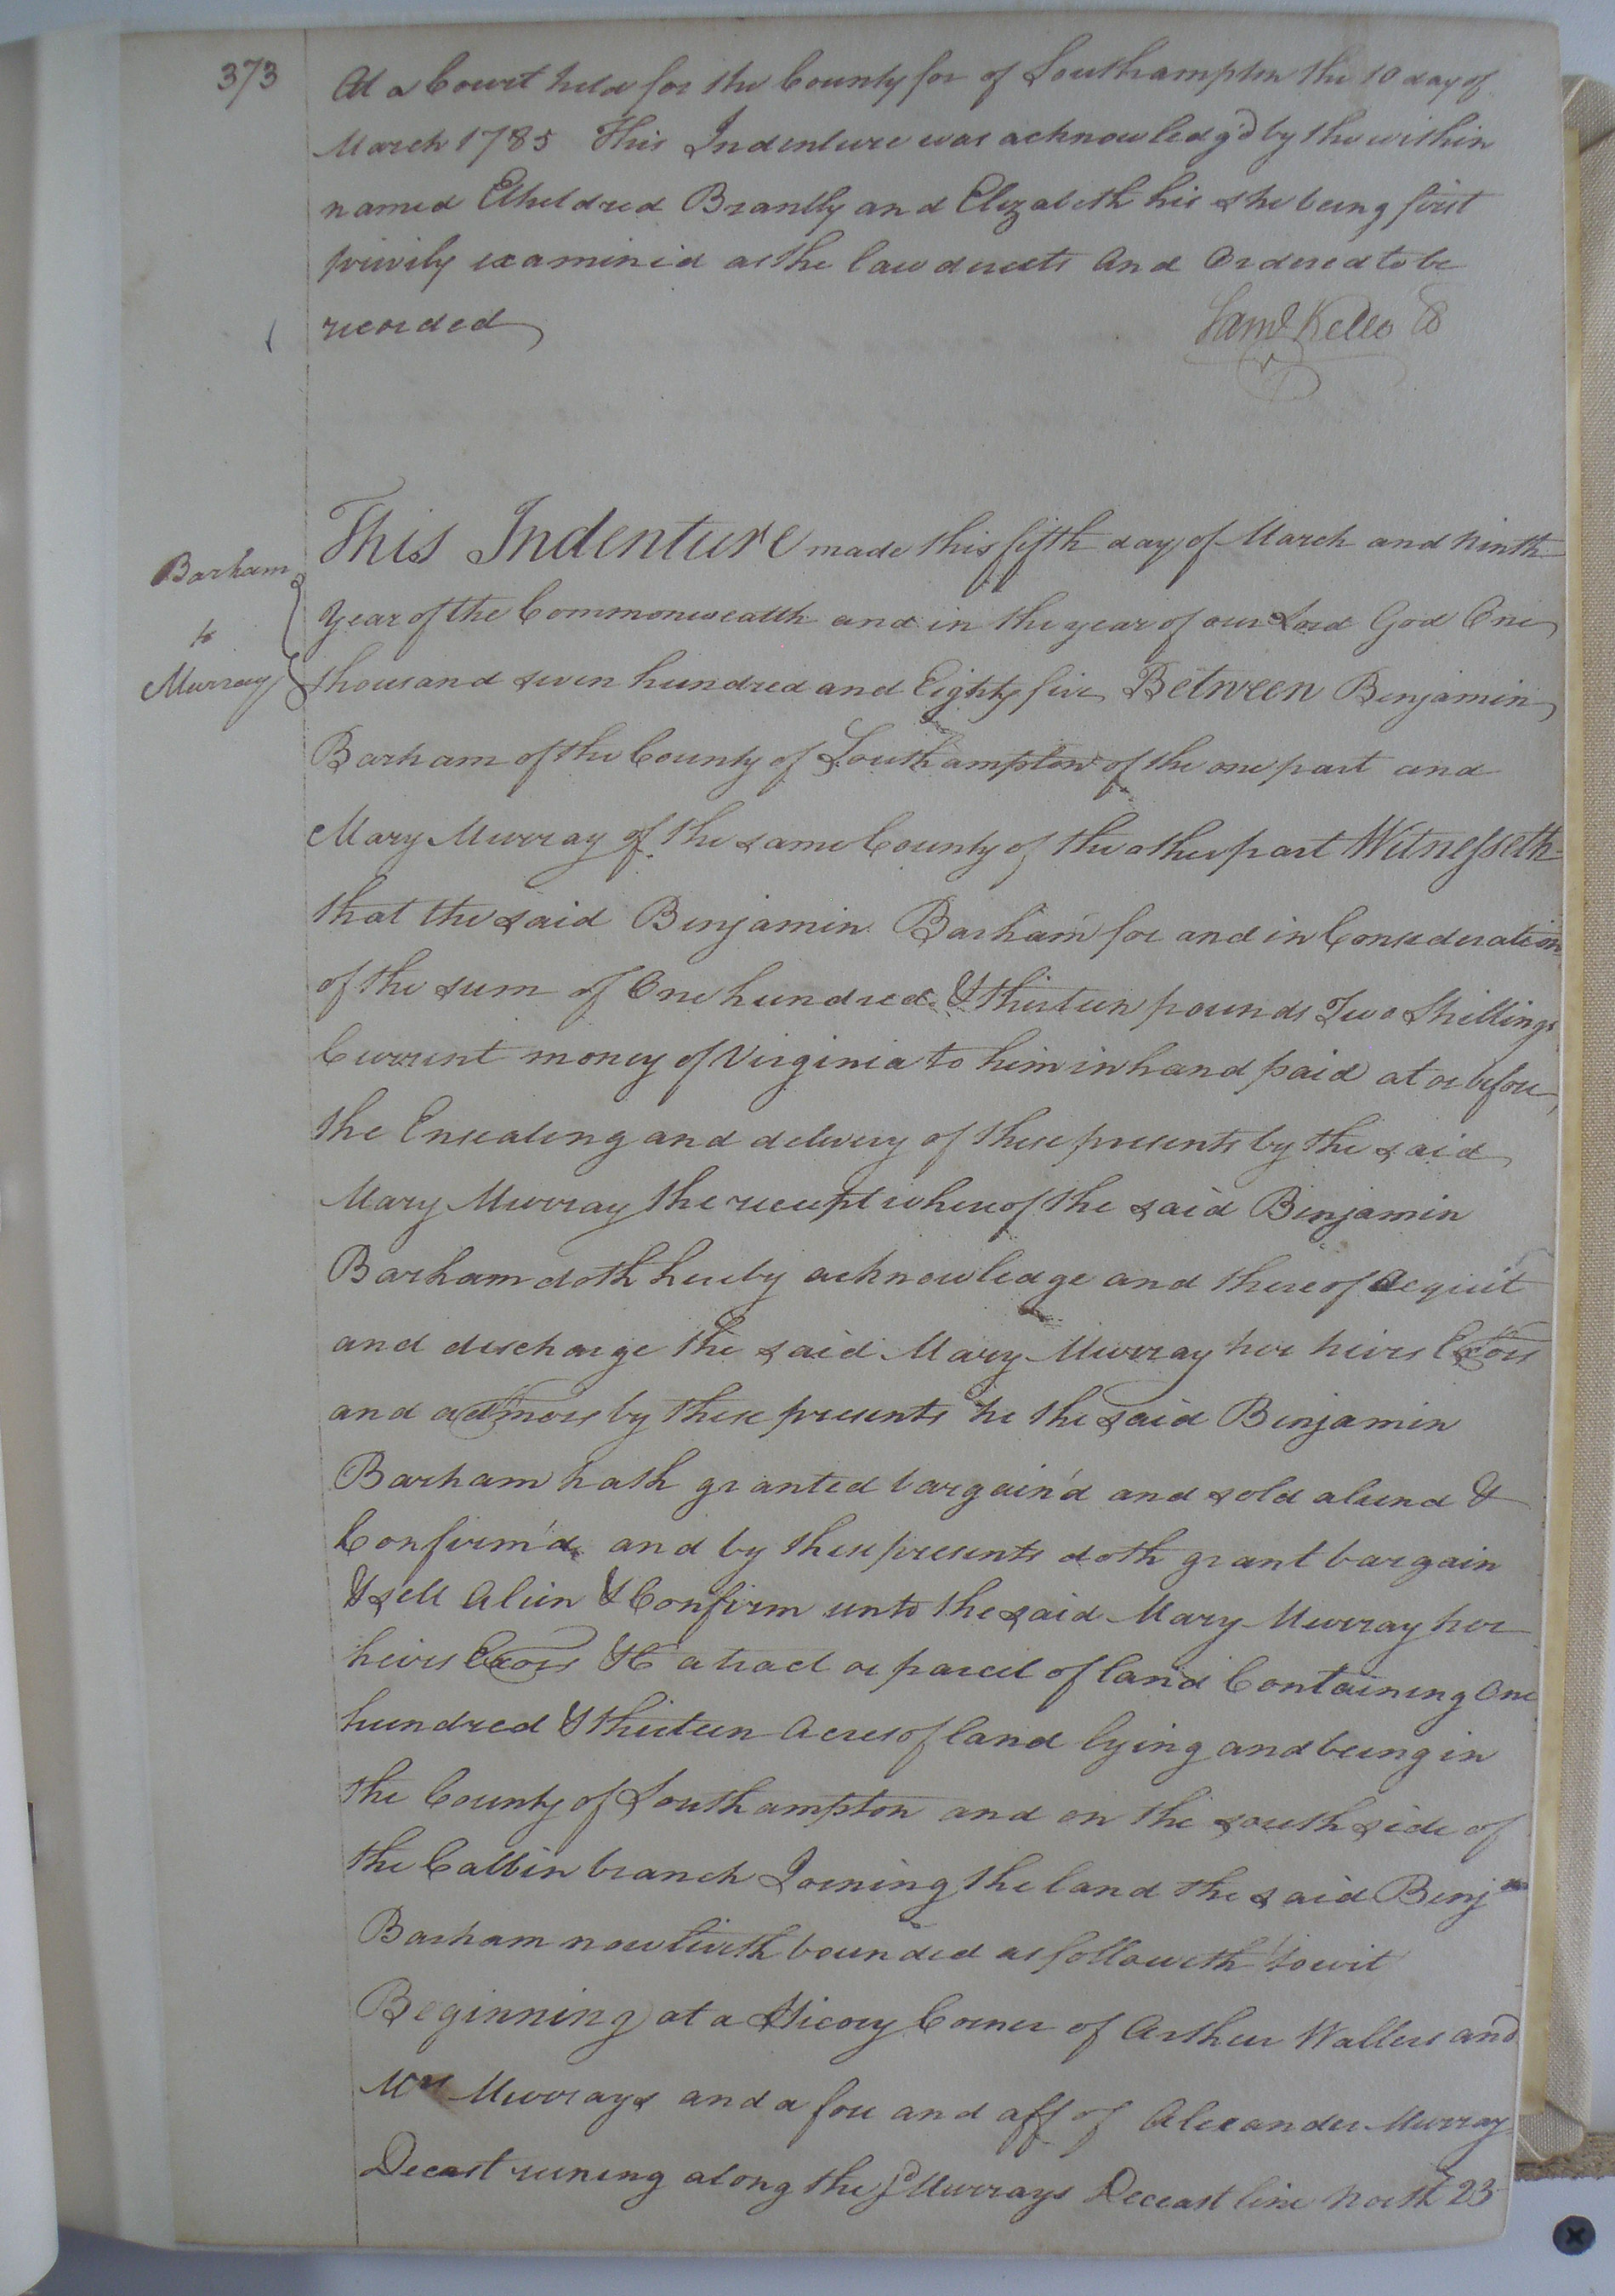 373
At a Court held for the County for of Southampton the 10 day of
March 1785 This Indenture was acknowledg'd by the within
named Etheldred Brantly and Elizabeth his she being first
privily examinid as the law directs And Ordered to be
recorded
Saml Kello CC
This Indenture made this fifth day of March and ninth
Year of the Commonwealth and in the year of our Lord God One
thousand seven hundred and Eighty five Between Benjamin
Barham
to
Murray
Barham of the County of Southampton of the one part and
Mary Murray of the same County of the other part Witnesseth
that the said Benjamin Barham for and in Consideration
of the sum of One hundred & thirteen pounds Two Shillings
Current money of Virginia to him in hand paid at or before
the Ensealing and delivery of these presents by the said
Mary Murray the receipt whereof the said Benjamin
Barham doth hereby acknowledge and thereof Acquit
and discharge the said Mary Murray her heirs Exors
and admors by these presents he the said Benjamin
Barham hath granted bargain'd and sold aliend &
Confirm'd and by these presents doth grant bargain
& sell Alien & Confirm unto the said Mary Murray her
heirs Exors &c a tract or parcel of land Containing One
hundred & thirteen Acres of land lying and being in
the County of Southampton and on the south side of
the Cabbin branch Joining the land the said Benjan
Barham now liveth bounded as followeth towit
Beginning at a Hicory Corner of Arthur Wallers and
Mrs Murrays and a fore and aff of Alexander Murray
Deceast runing along the sd Murrays Deceast line North 23